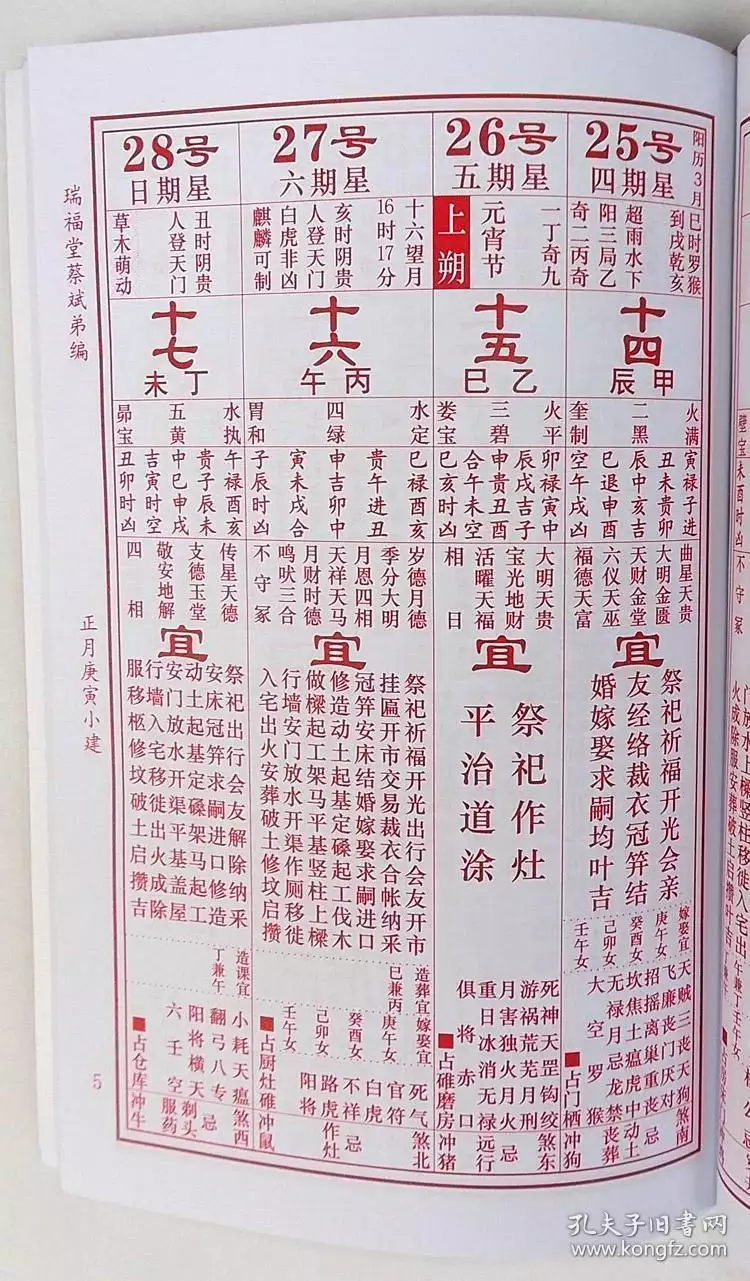 阳历3月
25号
星期四
巳时罗猴
到戌乾亥
超雨水下
阳三局乙
奇二丙奇
十四
甲辰
火满
二黑
奎制
寅禄子进
丑未贵卯
辰中亥吉
巳退申酉
空午戌凶
曲星天贵
大明金匮
天财金堂
六仪天巫
福德天富
宜
祭祀祈福开光会亲
友经络裁衣冠笄结
婚嫁娶求嗣均叶吉
嫁娶宜
庚午女
癸酉女
己卯女
壬午女
天贼三丧天狗煞南
飞廉丧门厌对
招摇离巢重丧忌
坎焦土瘟丧中动土
无禄月忌龙禁丧葬
大空罗猴
■占门栖冲狗
26号
星期五
一丁奇九
元宵节
上朔
十五
乙巳
火平
三碧
娄宝
卯禄寅中
辰戌吉子
申贵丑酉
合午未空
巳亥时凶
大明天贵
宝光地财
活曜天福
相日
宜
祭祀作灶
平治道涂
死神天罡钩绞煞东
游祸荒芜月刑
月害独火月火忌
重日冰消无禄远行
俱将赤口
■占碓磨房冲猪
27号
星期六
十六望月
16时17分
亥时阴贵
人登天门
白虎非凶
麒麟可制
十六
丙午
水定
四绿
胃和
巳禄酉亥
贵午进丑
申吉卯中
寅未戌合
子辰时凶
岁德月德
季分大明
月恩四相
天祥天马
月财时德
鸣吠三合
不守冢
宜
祭祀祈福开光出行会友开市
挂匾开市交易裁衣合帐纳采
冠笄安床结婚嫁娶求嗣进口
修造动土起基定磉起工伐木
做樑起工架马平基竖柱上樑
行墙安门放水开渠作厕移徙
入宅出火安葬破土修坟启攒
造葬宜
巳兼丙
嫁娶宜
庚午女
癸酉女
己卯女
壬午女
死气煞北
官符
白虎忌
不祥作灶
路虎
阳将
■占厨灶碓冲鼠
28号
星期日
丑时阴贵
人登天门
草木萌动
十七
丁未
水执
五黄
昴宝
午禄酉亥
贵子辰未
申巳申戌
吉寅时空
丑卯时凶
传星天德
支德玉堂
敬安地解
四相
宜
祭祀出行会友解除纳采
安床冠笄求嗣进口修造
动土起基定磉架马起工
安门放水开渠平基盖屋
行墙入宅移徙出火成除
服移柩修坟破土启攒吉
造课宜
丁兼午
小耗天瘟煞西
翻弓八专忌
阳将横天剃头
六壬空服药
■占仓库冲牛
瑞福堂蔡斌弟编
正月庚寅小建
5
壁宝
未酉时凶
不守冢
孔夫子旧书网
www.kongfz.com